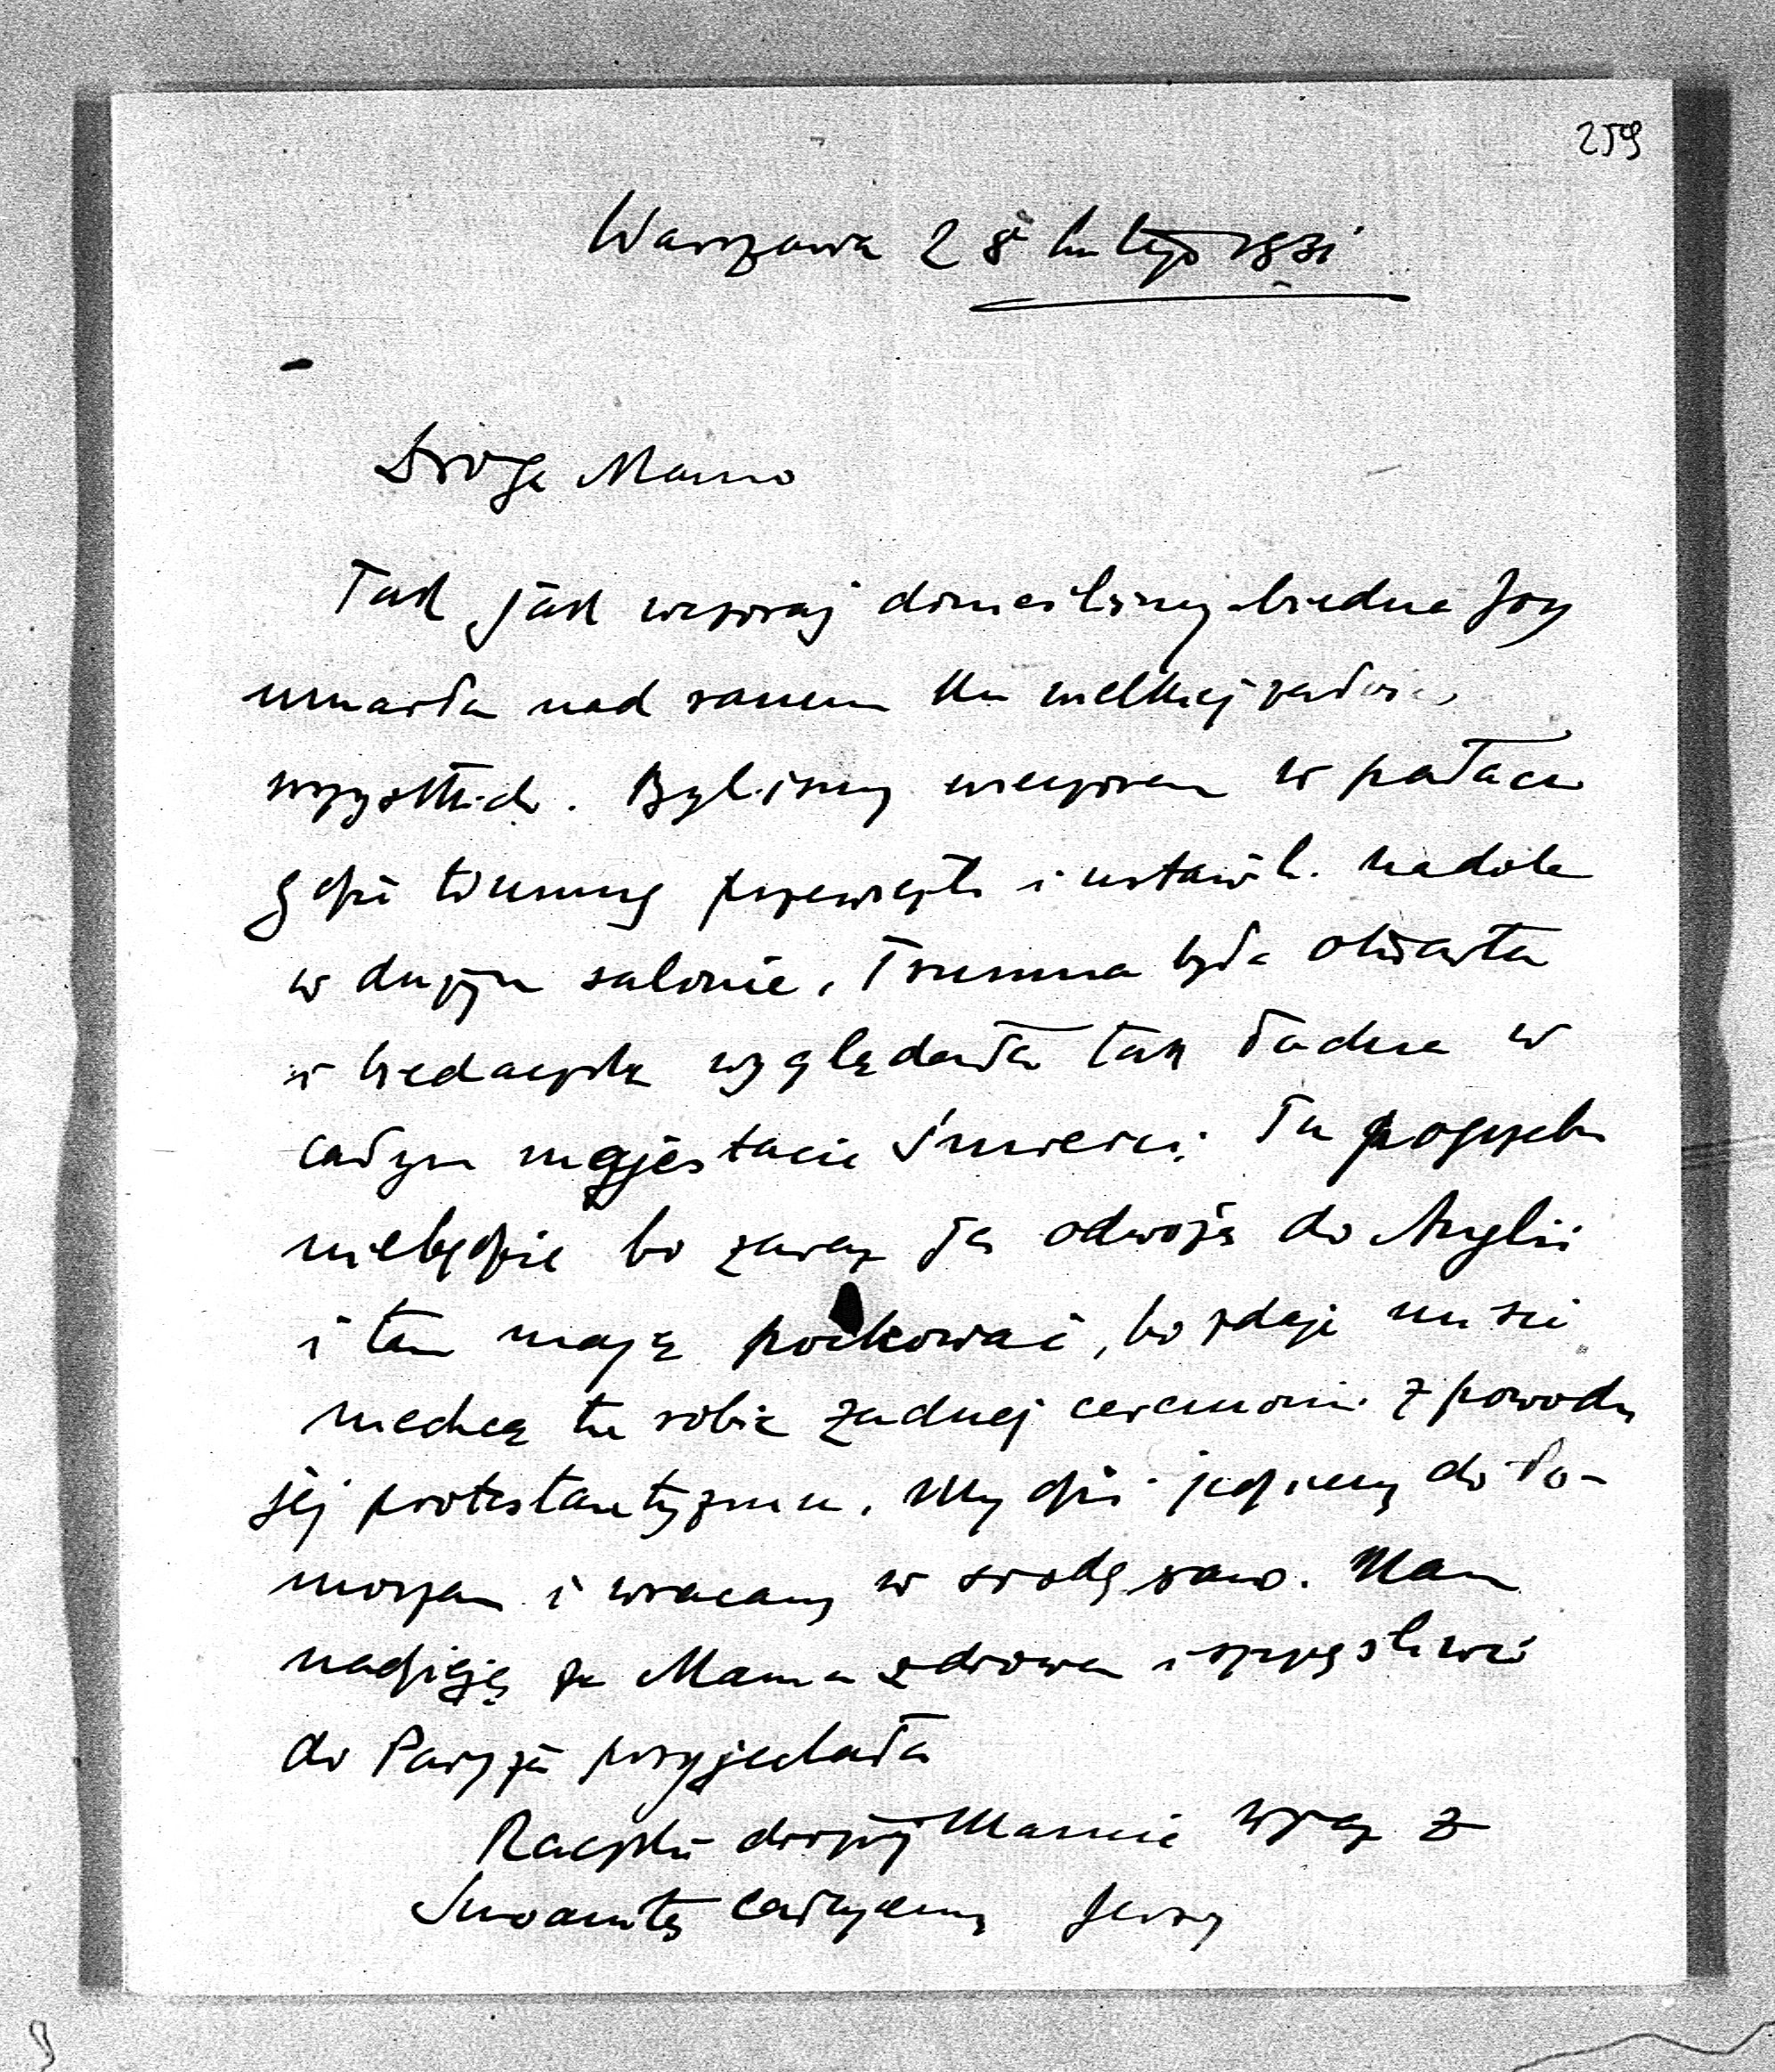 259
Warszawa 28 lutego 1931
Droga Mamo
Tak jak wczoraj donieśliśmy biedna Joy
umarła nad ranem ku wielkiej żałości
wszystkich. Byliśmy wieczorem w pałacu
gdzie trumnę przewieźli i ustawili nadole
w dużym salonie, Trumna była otwarta
i biedaczka wyglądała tak ładna w
całym majestacie śmierci; Tu pogrzebu
niebędzie bo zaraz ją odwożą do Anglii
i tam mają pochować, bo zdaje mi sie
niechcą tu robić żadnej ceremonii z powodu
jej protestantyzmu. My dziś jedziemy do Po-
morzan i wracamy w środę rano. Mam
nadzieję że Mama zdrowa i szczęśliwie
do Paryża przyjechała
Rączki drogiej Mamie wraz z
całujemy Jerzy